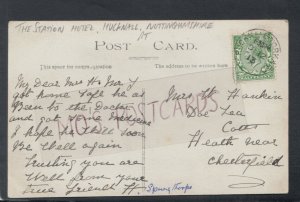 THE STATION HOTEL, HUCKNALL, NOTTINGHAMSHIRE
POST CARD.
This space for correspondence
The address to be written here
My Dear Mrs H & Mr J
got home safe he as
Been to the Doctor
and got some medicine
I hope he will soon
Be Well again
trusting you are
Well from your
true friends H.
Mrs H Hankin
Doe Lea
Cotts
Heath near
Chesterfield
POSTCARDS